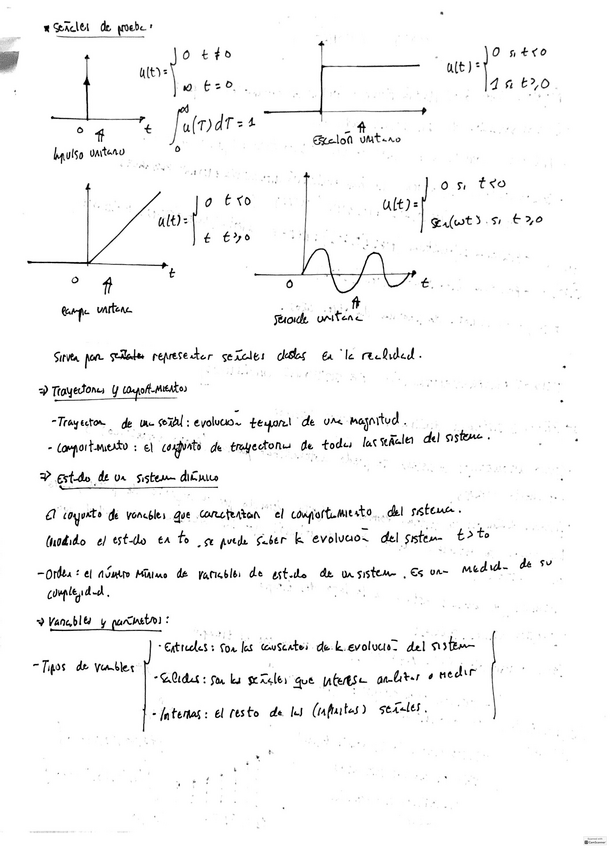 * Señales de prueba:
u(t)= { 0 t ≠ 0
∞ t = 0
∫₀^∞ u(T)dT = 1
0 t
Impulso unitario
u(t)= { 0 si t<0
1 si t≥0
Escalón unitario
u(t)= { 0 t<0
t t≥0
0 t
Rampa unitaria
u(t)= { 0 si t<0
sen(wt) si t≥0
0 t
unitaria
Sirven para representar señales dadas en la realidad.
=> Trayectorias y comportamientos
- Trayectoria de una señal: evolución temporal de una magnitud.
- Comportamiento: el conjunto de trayectorias de todas las señales del sistema.
=> Estado de un sistema dinámico
El conjunto de variables que caracterizan el comportamiento del sistema.
Conocido el estado en to, se puede saber la evolución del sistema t>to
- Orden: el número mínimo de variables de estado de un sistema. Es una medida de su
complejidad.
=> Variables y parámetros:
- Tipos de variables
- Entradas: son las causantes de la evolución del sistema
- Salidas: son las señales que interesa analizar o medir
- Internas: el resto de las (infinitas) señales.